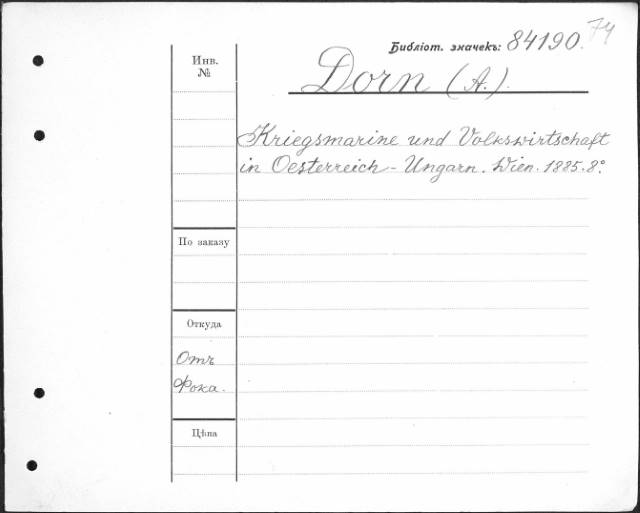 Библіот. значекъ: 84190. 74
Инв.
№
Dorn (A.).
Kriegsmarine und Volkswirtschaft
in Oesterreich-Ungarn. Wien. 1885. 8°.
По заказу
Откуда
Отъ
Фока.
Цѣна